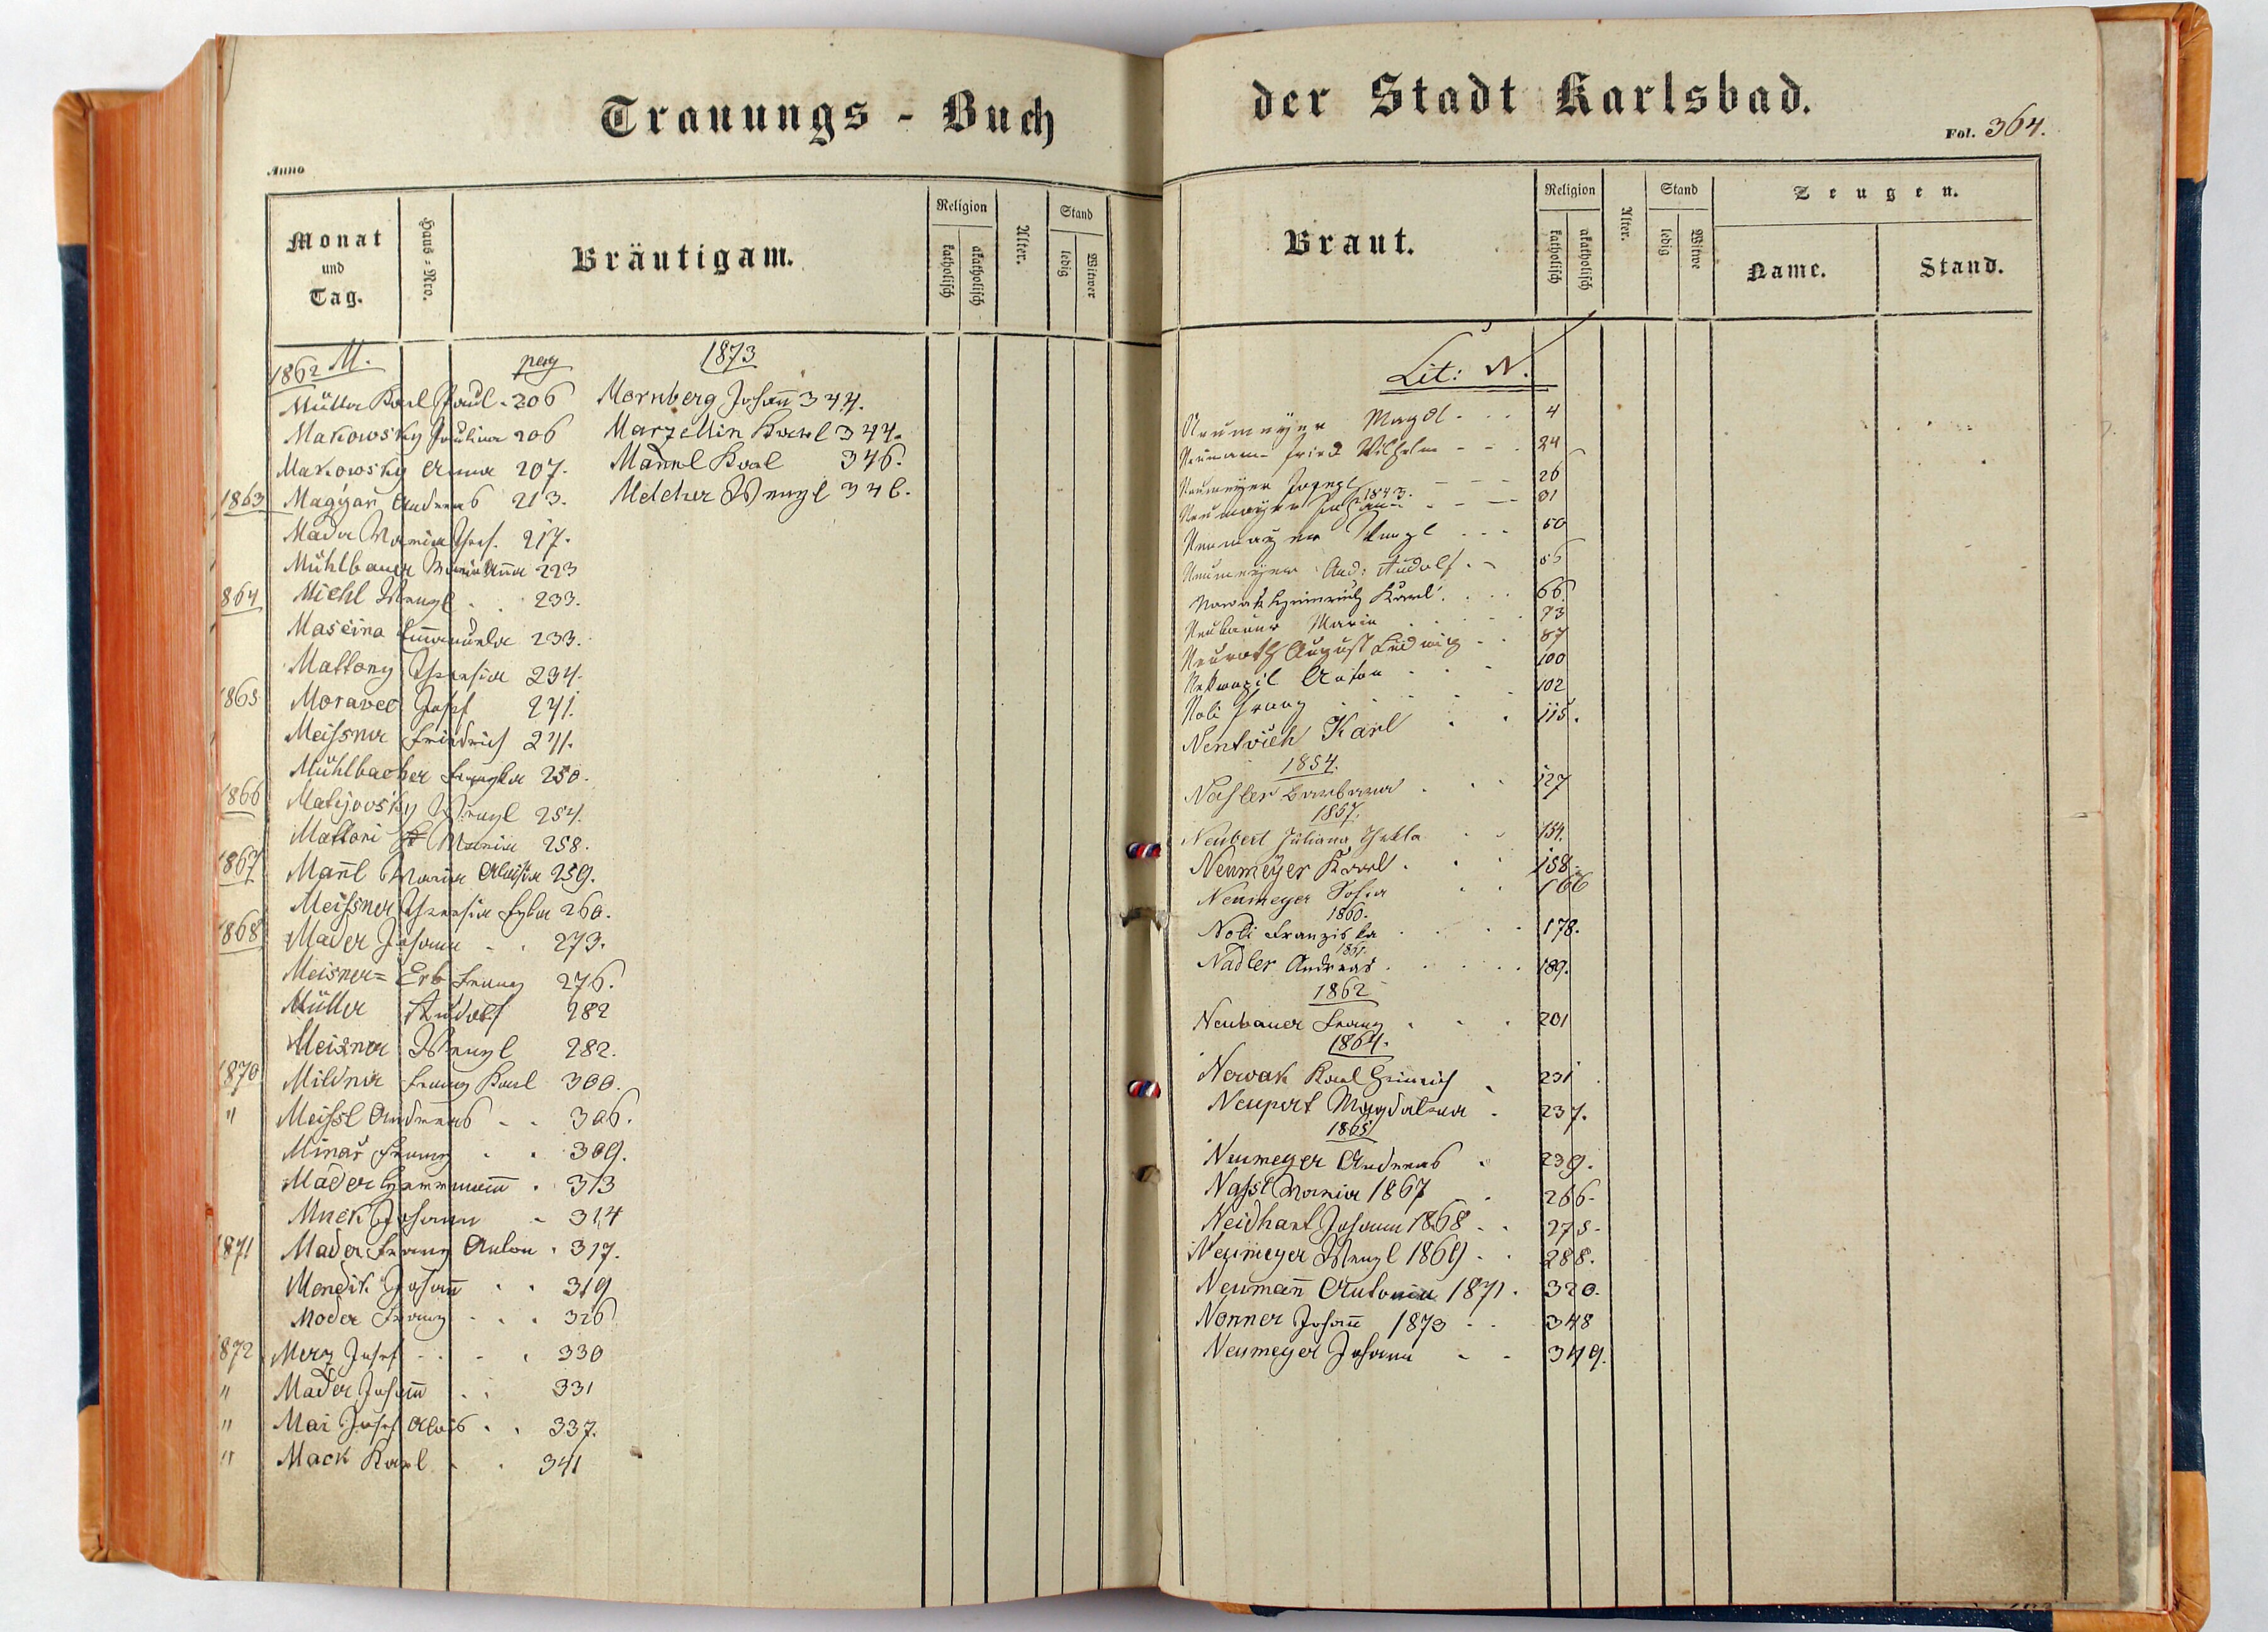 Trauungs - Buch
Anno
Monat und Tag.
Haus-Nro.
Bräutigam.
Religion
katholisch
akatholisch
Alter.
Stand
ledig
Witwer
1862 M. pag
Müller Karl Paul - 206
Makowsky Paulina 206
Makowsky Anna 207.
1863 Magyar Andreas 213.
Mader Maria Theres. 217.
Mühlbauer Maria Anna 223
1864 Michl Wenzl . . 233.
Maseina Emanuela 233.
Mattony Theresia 234.
1865 Moravec Josef 241.
Meißner Friedrich 241.
Mühlbacher Franziska 250.
1866 Matijovsky Wenzl 254.
Mattoni Maria 258.
1867 Mañl Maria Aloisia 259.
Meißner Theresia 260.
1868 Mader Johann - . 273.
Meisner = Erb Franz 276.
Müller Rudolf 282
Meisner Wenzl 282.
1870 Mildner Franz Karl 300.
" Meißl Andreas - . 306.
Minař Franz . . 309.
Mader Hermann . 313
Muck Johann - 314
1871 Mader Franz Anton . 317.
Mendik Johañ . . 319
Moder Franz . . . 326
1872 Merz Josef - . - . 330
" Mader Johañ . . 331
" Mai Josef Alois . . 337.
" Mack Karl . . 341
1873
Mornberg Johañ 344.
Marzellin Karl 344.
Mañl Karl 346.
Melcher Wenzl 346.
der Stadt Karlsbad.
Fol. 364.
Braut.
Religion
katholisch
akatholisch
Alter.
Stand
ledig
Witwe
Zeugen.
Name.
Stand.
Lit: N.
Neumeyer Magdl . . . 4
Neumann Fried Wilhelm - - . 24
Neumeyer Joseph - - - 26
1843.
Neumeyer Johann . - - 31
Neumayer Wenzl . . . 50
Neumeyer And: Rudolf . -
Nowak Heinrich Karl . . . 66.
Neubauer Maria . . . . 73
Neurath August Ludwig . . 87
Nekwapil Anton . . . 100
Noli Franz . . . . 102
Nentvich Karl . . 115.
1854.
Naßler Barbara . . . 127
1857.
Neubert Juliana Thekla . . 154.
Neumeyer Karl . . . 158.
Neumeyer Sofia . . 166
1860.
Noli Franziska . . . . 178.
1861.
Nadler Andreas . . . . . 189.
1862
Neubauer Franz . . . 201
1864.
Nowak Karl Heinrich . 231
Neupert Magdalena . 237.
1865
Neumeyer Andreas . 239.
Naßl Maria 1867 . 266.
Neidhart Johann 1868 . . 275.
Neumeyer Wenzl 1869 . . 288.
Neumañ Antonia 1871 . 320.
Nonner Johañ 1873 . . 348
Neumeyer Johann - - 349.